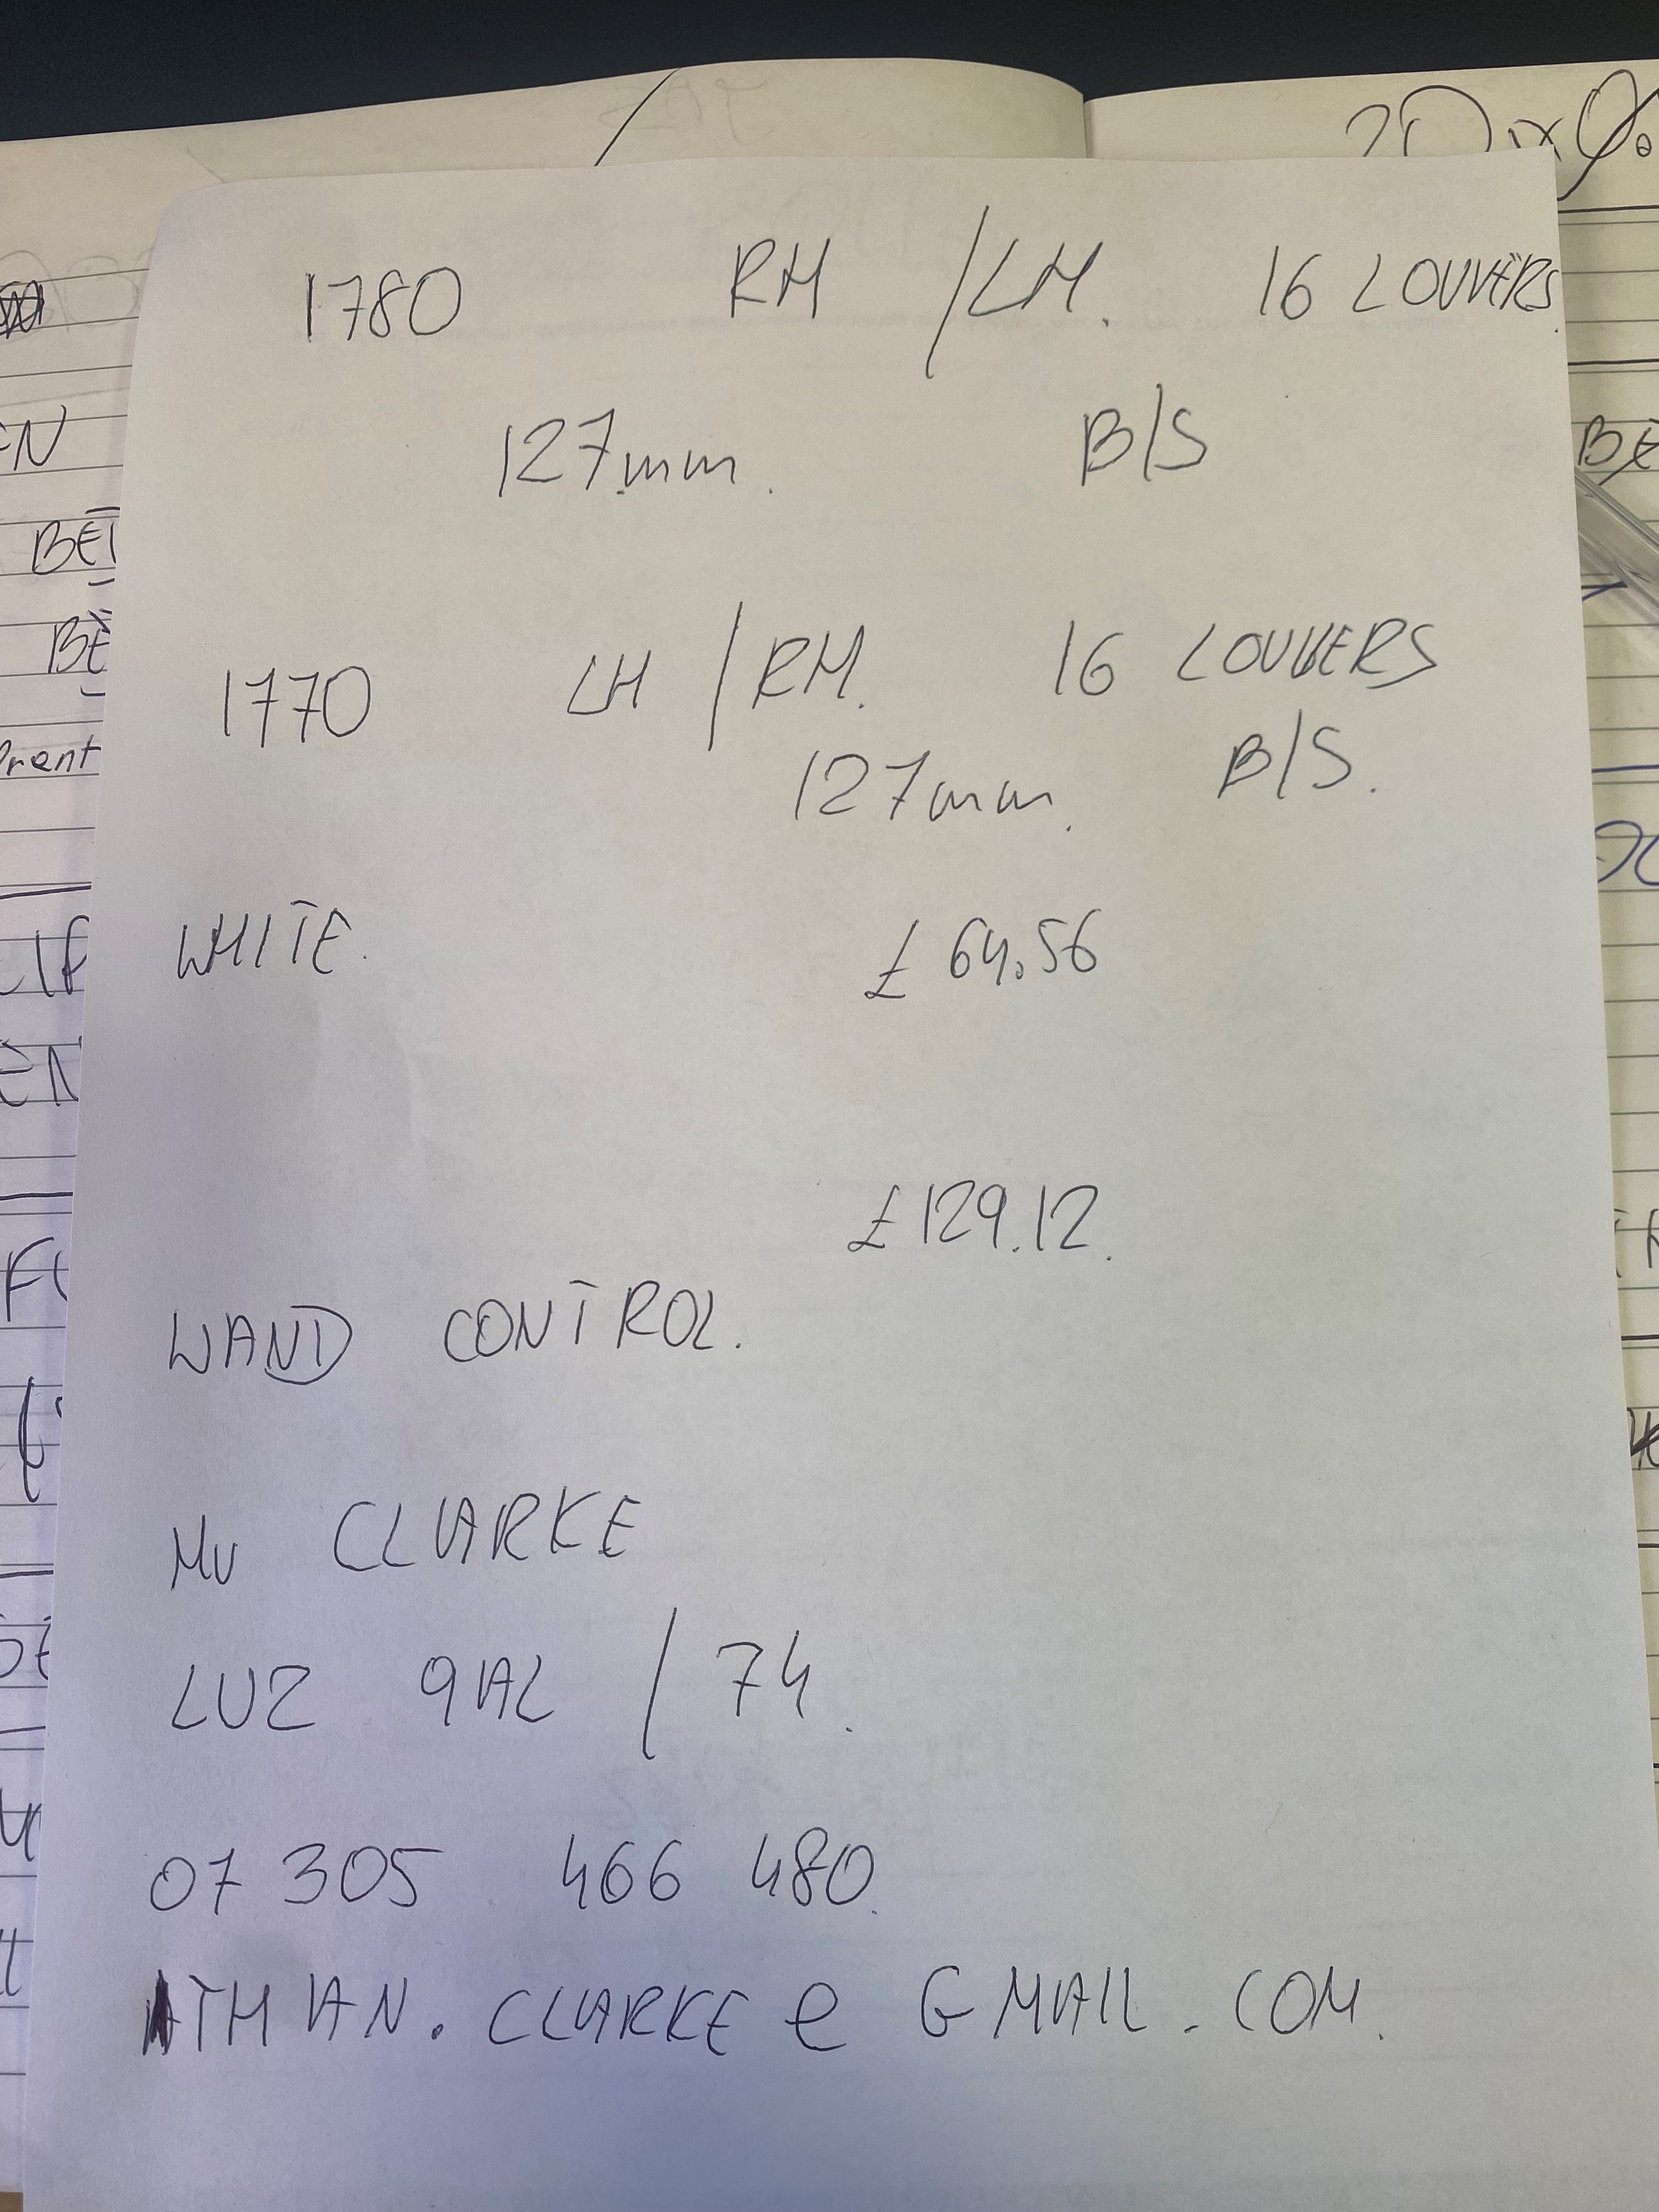 1780 RH / LH. 16 LOUVERS.
127mm. B/S
1770 LH / RH. 16 LOUVERS
127mm. B/S.
WHITE. £ 64.56
£129.12.
WAND CONTROL.
Mr CLARKE
LU2 9AL / 74.
07 305 466 480.
ATHIAN.CLARKE@GMAIL.COM.
BET
BE